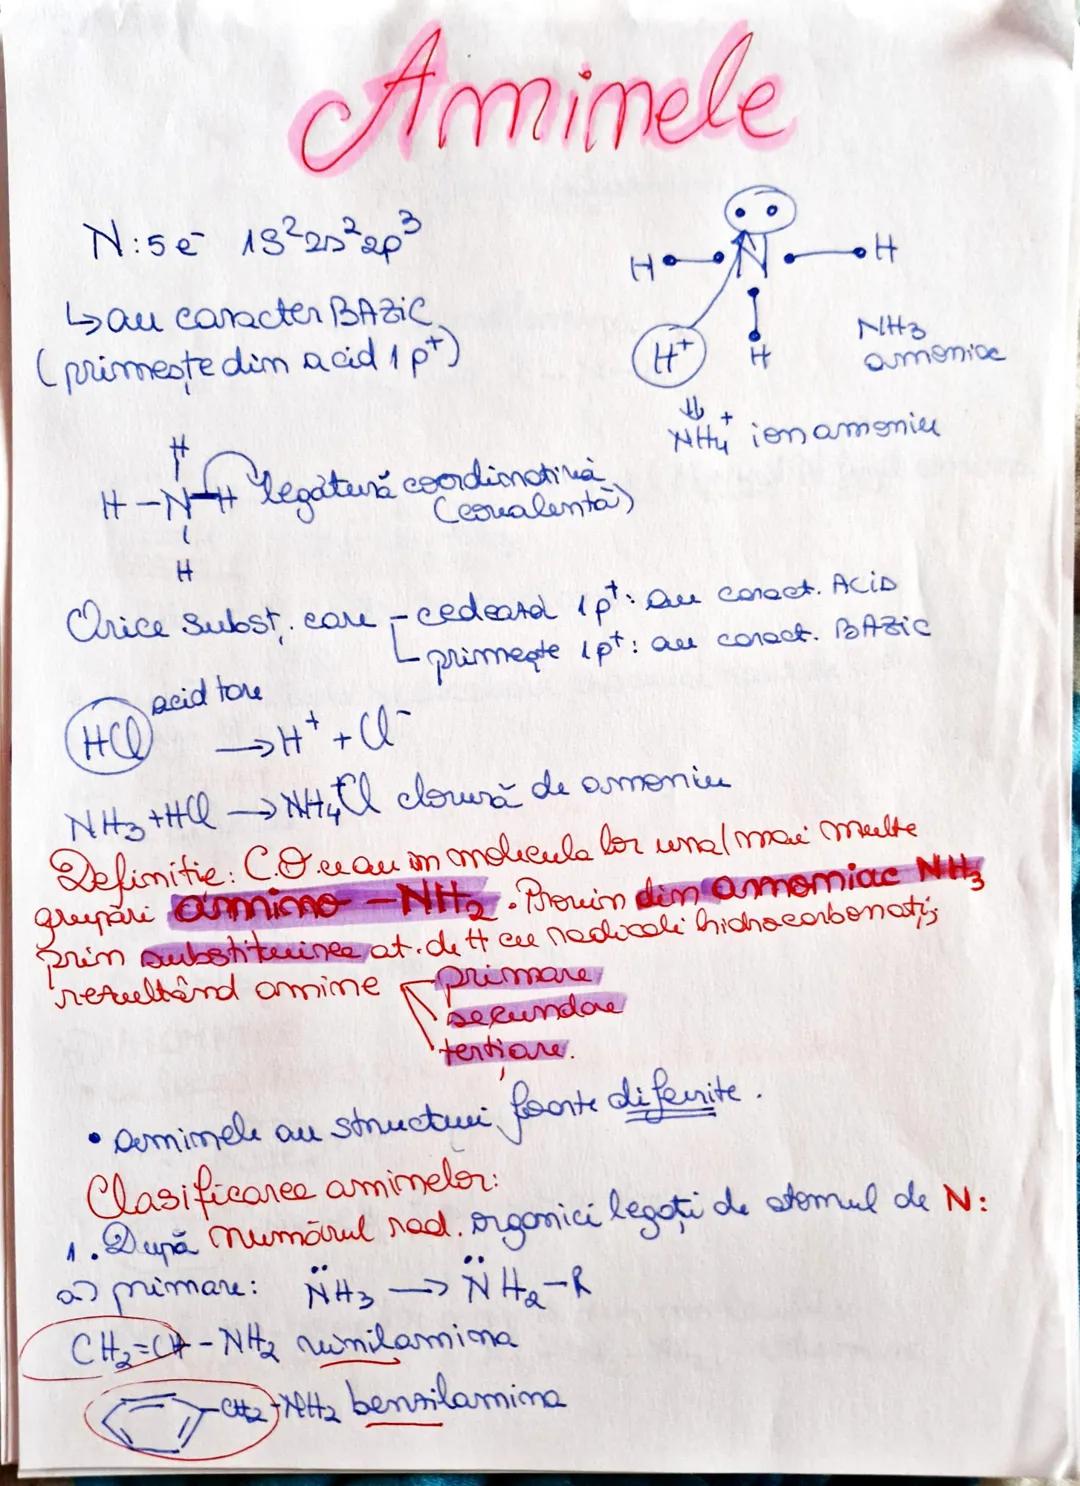 Aminele
N: 5e⁻ 1s² 2s² 2p³
H N H
H⁺ H
NH₃
amoniac
↳ au caracter BAZIC
(primește din acid 1 p⁺)
⇓
NH₄⁺ ion amoniu
H
H – N – H legătură coordinativă
(covalentă)
H
Orice subst. care – cedează 1p⁺: au caract. ACID
primește 1p⁺: au caract. BAZIC
acid tare
HCl → H⁺ + Cl⁻
NH₃ + HCl → NH₄⁺Cl clorură de amoniu
Definiție: C.O cu au în molecula lor una/mai multe
grupări amino –NH₂. Provin din amoniac NH₃
prin substituirea at. de H cu radicali hidrocarbonați;
rezultând amine primare
secundare
terțiare.
• aminele au structuri foarte diferite.
Clasificarea aminelor:
1. După numărul rad. organici legați de atomul de N:
a) primare: N̈H₃ → N̈H₂–R
CH₂=CH–NH₂ vinilamina
–CH₂–NH₂ benzilamina